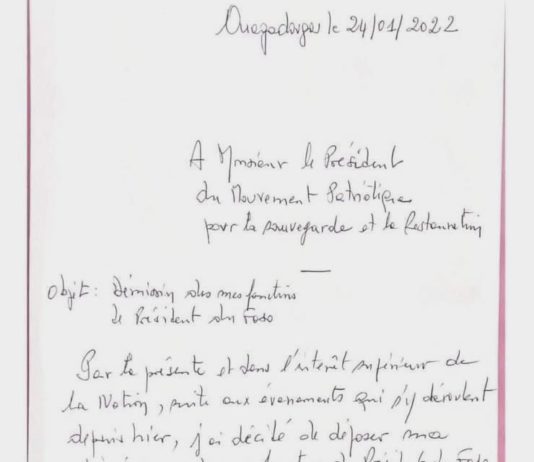 Ouagadougou le 24/01/2022
A Monsieur le Président
du Mouvement Patriotique
pour la sauvegarde et la Restauration
Objet: Démission des mes fonctions
de Président du Faso
Par la présente et dans l'intérêt supérieur de
la Nation, suite aux événements qui s'y déroulent
depuis hier, j'ai décidé de déposer ma
de Président du Faso